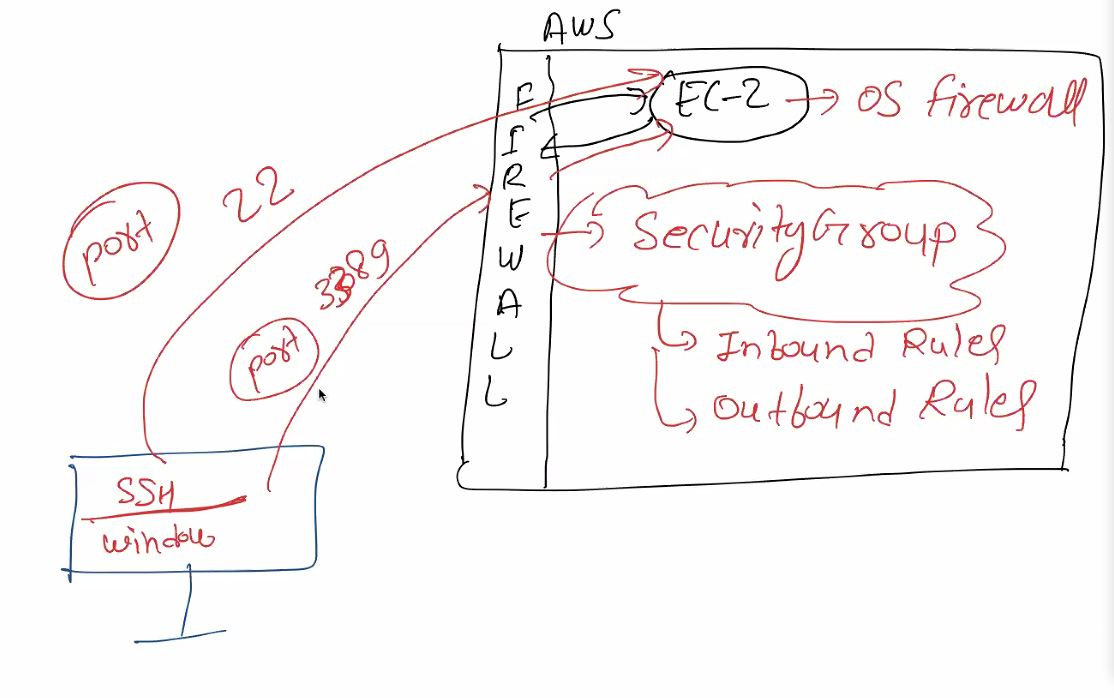 AWS
FIREWALL
EC-2
OS firewall
Security Group
Inbound Rules
Outbound Rules
port
22
port
3389
SSH
window